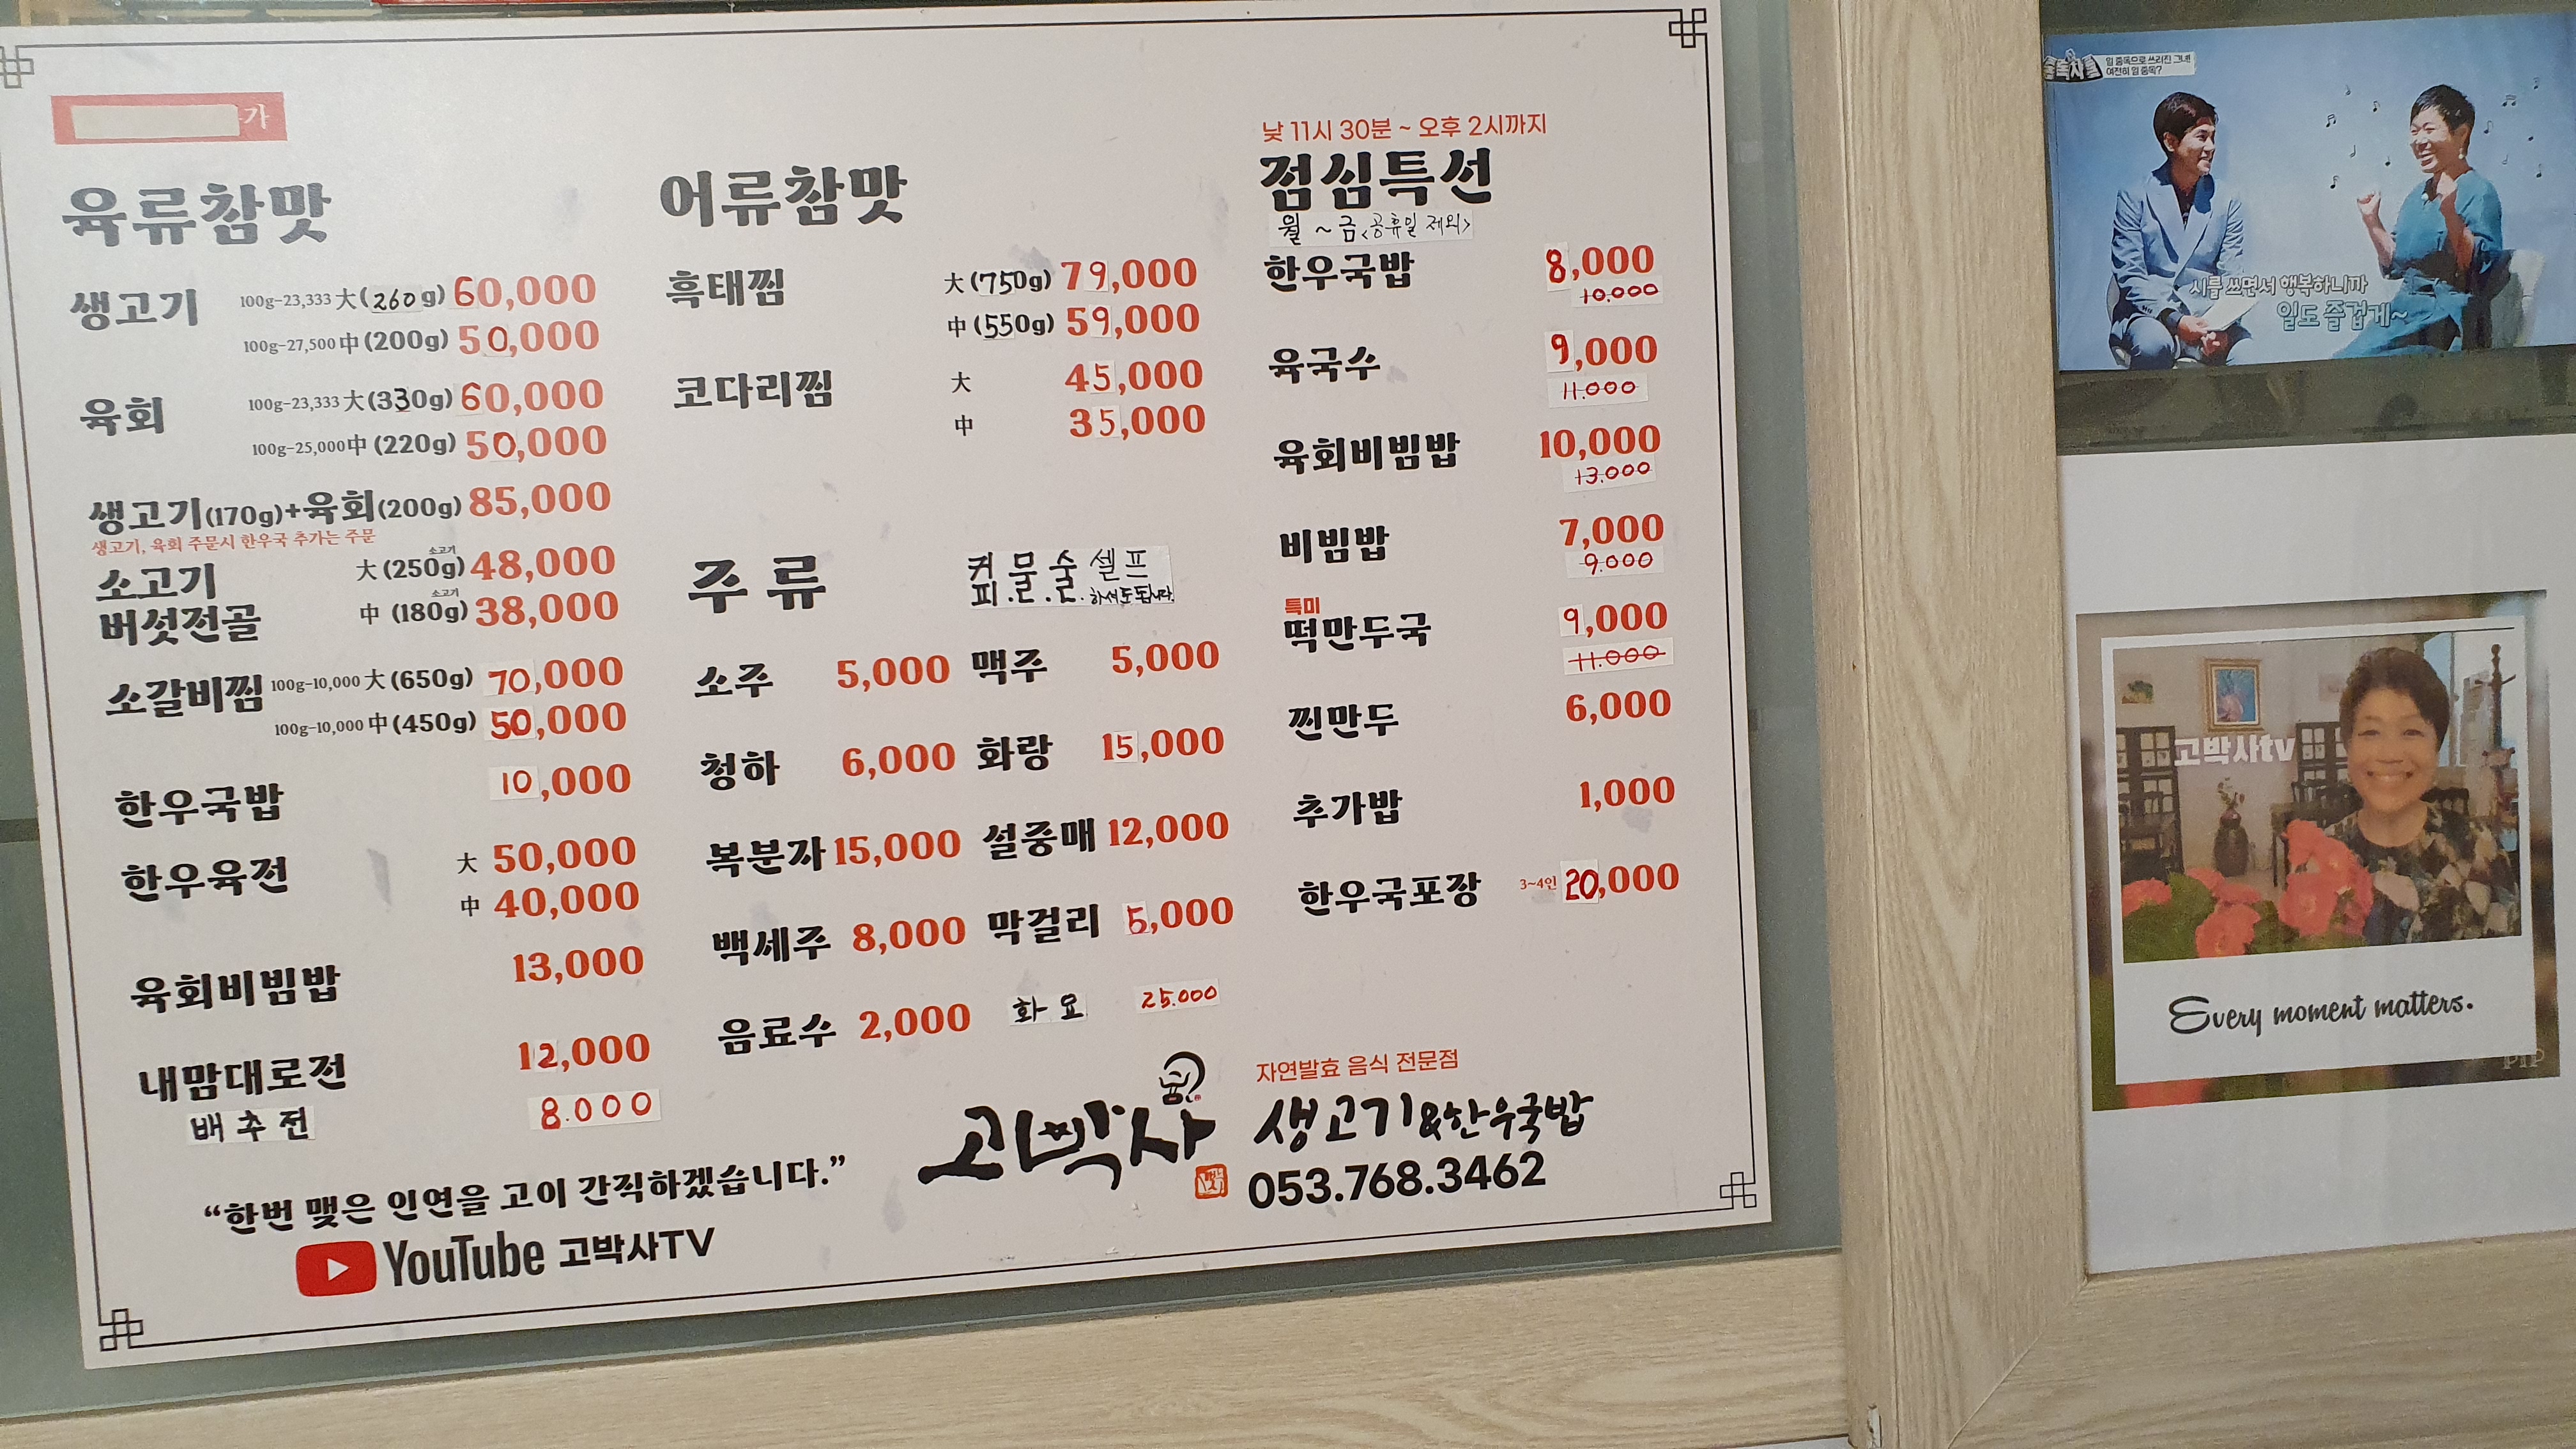 가
육류참맛
생고기 100g-23,333 大(260g) 60,000
100g-27,500 中(200g) 50,000
육회 100g-23,333 大(330g) 60,000
100g-25,000 中(220g) 50,000
생고기(170g)+육회(200g) 85,000
생고기, 육회 주문시 한우국 추가는 주문
소고기 버섯전골 大(250g) 소고기 48,000
中(180g) 소고기 38,000
소갈비찜 100g-10,000 大(650g) 70,000
100g-10,000 中(450g) 50,000
한우국밥 10,000
한우육전 大 50,000
中 40,000
육회비빔밥 13,000
내맘대로전 12,000
배추전 8.000
어류참맛
흑태찜 大(750g) 79,000
中(550g) 59,000
코다리찜 大 45,000
中 35,000
주류
커피.물.술. 셀프 하셔도됩니다.
소주 5,000 맥주 5,000
청하 6,000 화랑 15,000
복분자 15,000 설중매 12,000
백세주 8,000 막걸리 5,000
음료수 2,000 화요 25.000
낮 11시 30분 ~ 오후 2시까지
점심특선
월 ~ 금<공휴일 제외>
한우국밥 8,000
10.000
육국수 9,000
11.000
육회비빔밥 10,000
13.000
비빔밥 7,000
9.000
특미
떡만두국 9,000
11.000
찐만두 6,000
추가밥 1,000
한우국포장 3~4인 20,000
“한번 맺은 인연을 고이 간직하겠습니다.”
YouTube 고박사TV
고박사
자연발효 음식 전문점
생고기&한우국밥
053.768.3462
중독자들
일 중독으로 쓰러진 그녀!
여전히 일 중독?
시를 쓰면서 행복하니까
일도 즐겁게~
고박사tv
Every moment matters.